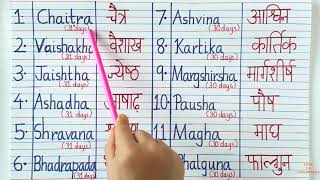 1. Chaitra चैत्र
(31 days)
2. Vaishakha वैशाख
(31 days)
3. Jaishtha ज्येष्ठ
(31 days)
4. Ashadha आषाढ़
(31 days)
5. Shravana
(31 days)
6. Bhadrapada
(31 days)
7. Ashvina आश्विन
(30 days)
8. Kartika कार्तिक
(30 days)
9. Margshirsha मार्गशीर्ष
(30 days)
10. Pausha पौष
(30 days)
11 Magha माघ
(30 days)
Phalguna फाल्गुन
(30 days)